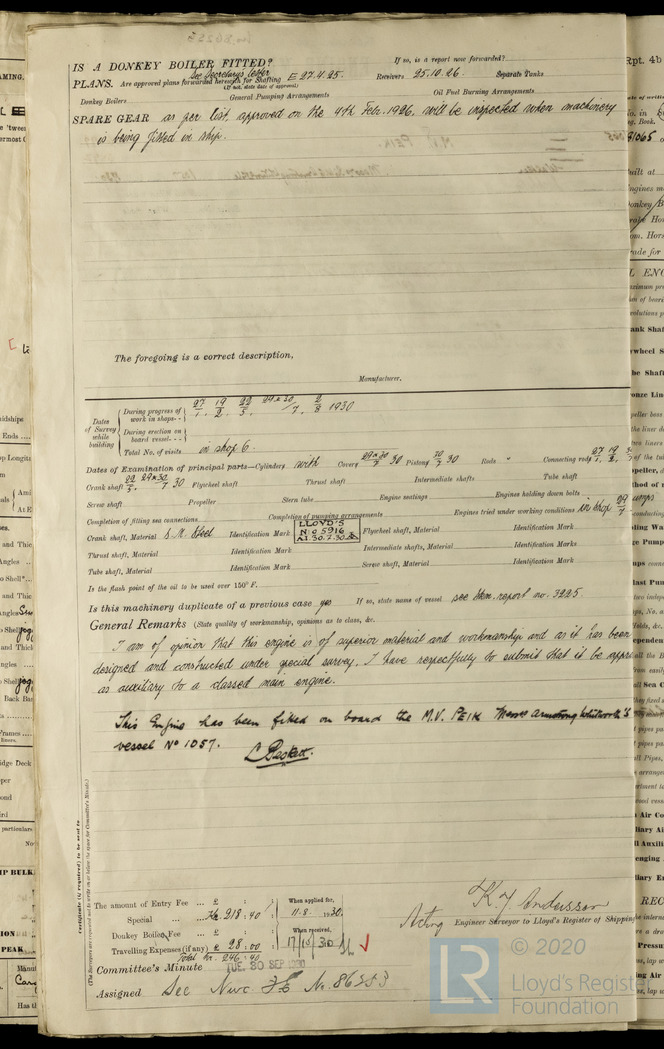 IS A DONKEY BOILER FITTED?
If so, is a report now forwarded?
See Secretary's letter
PLANS. Are approved plans forwarded herewith for Shafting E 27.4.25. Receivers 25.10.26. Separate Tanks
(If not, state date of approval)
Donkey Boilers General Pumping Arrangements Oil Fuel Burning Arrangements
SPARE GEAR as per list, approved on the 4th Feb. 1926, will be inspected when machinery
is being fitted in ship.
The foregoing is a correct description,
Manufacturer.
Dates of Survey while building
During progress of work in shops - - 27/1. 19/2. 22/5. 29 & 30/7. 2/8 1930
During erection on board vessel - - -
Total No. of visits in shop 6.
Dates of Examination of principal parts—Cylinders with Covers 29 & 30/7 30 Pistons 30/7 30 Rods " Connecting rods 27/1. 19/2.
Crank shaft 22/5. 29 & 30/7 30 Flywheel shaft Thrust shaft Intermediate shafts Tube shaft
Screw shaft Propeller Stern tube Engine seatings Engines holding down bolts
Completion of fitting sea connections Completion of pumping arrangements Engines tried under working conditions in shop 29/7
Crank shaft, Material S.M. Steel Identification Mark LLOYD'S No 5916 A.I. 30.7.30 Flywheel shaft, Material Identification Mark
Thrust shaft, Material Identification Mark Intermediate shafts, Material Identification Marks
Tube shaft, Material Identification Mark Screw shaft, Material Identification Mark
Is the flash point of the oil to be used over 150° F.
Is this machinery duplicate of a previous case yes If so, state name of vessel see Skm. report no. 3225
General Remarks (State quality of workmanship, opinions as to class, &c.
I am of opinion that this engine is of superior material and workmanship and as it has been
designed and constructed under special survey. I have respectfully to submit that it be appr
as auxiliary to a classed main engine.
This Engine has been fitted on board the M.V. PEIK Messrs Armstrong Whitworth's
vessel No 1057.
The amount of Entry Fee ... £ : :
Special ... ... Kr. 218:40
Donkey Boiler Fee ... £ : :
Travelling Expenses (if any) £ 28:00
Total Kr. 246:40
When applied for, 11.8. 1930.
When received, 17/10/30
Certificate (if required) to be sent to
(The Surveyors are requested not to write on or below the space for Committee's Minute.)
K Y Andersson
Acting Engineer Surveyor to Lloyd's Register of Shipping
Committee's Minute TUE. 30 SEP 1930
Assigned See Nwc. No. 86553
LR
© 2020
Lloyd's Register
Foundation
Rpt. 4b